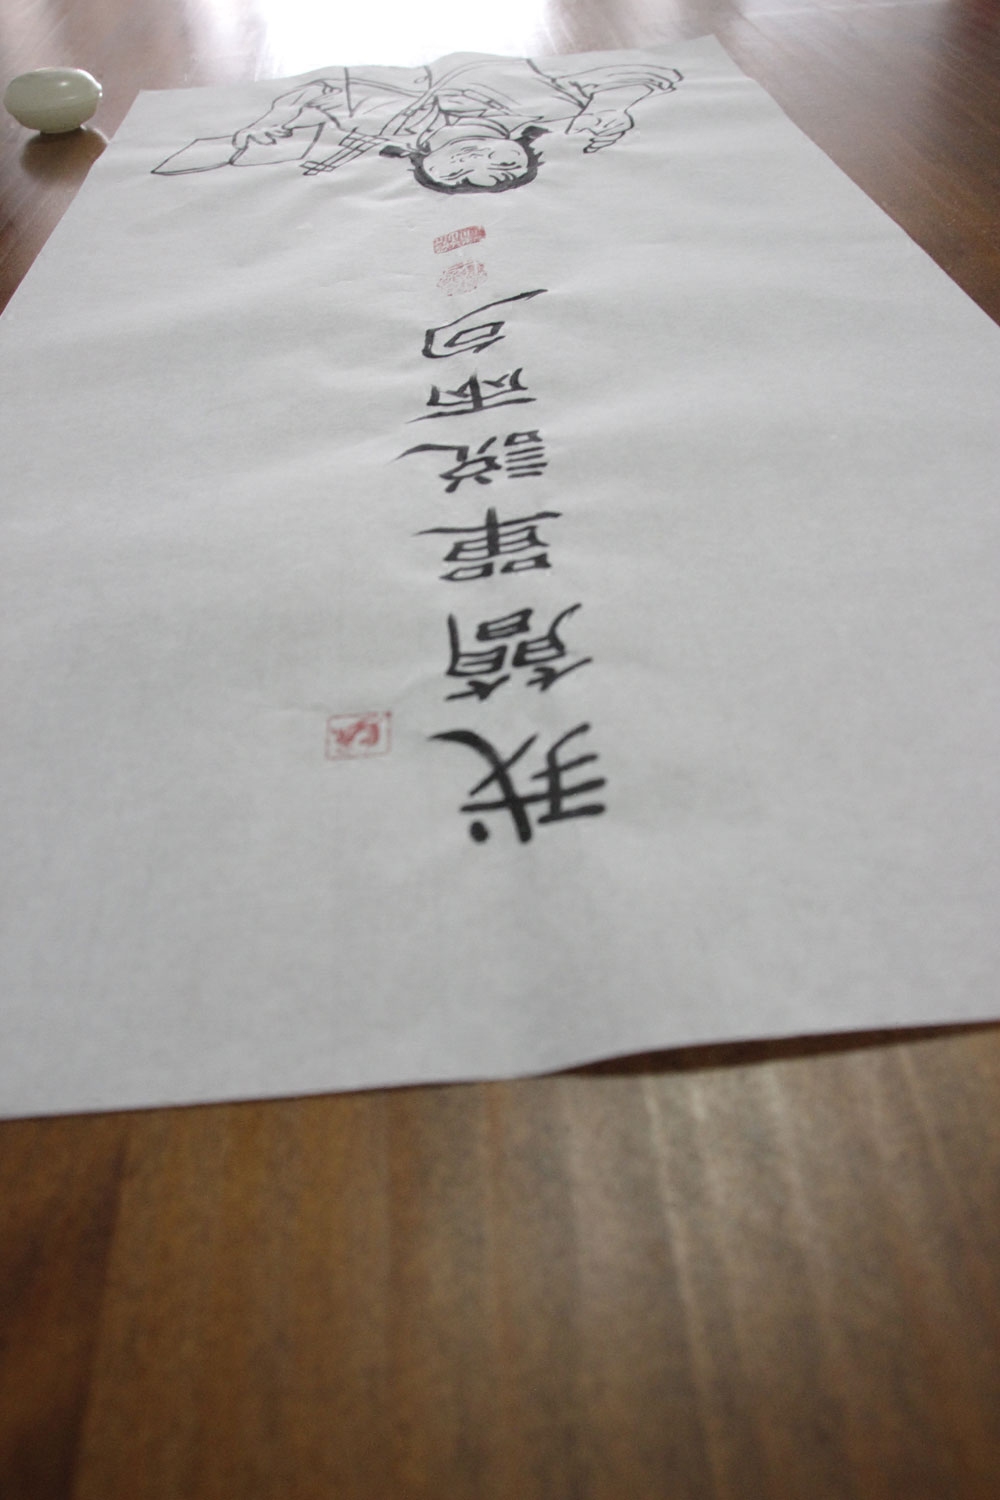 我簡單說兩句